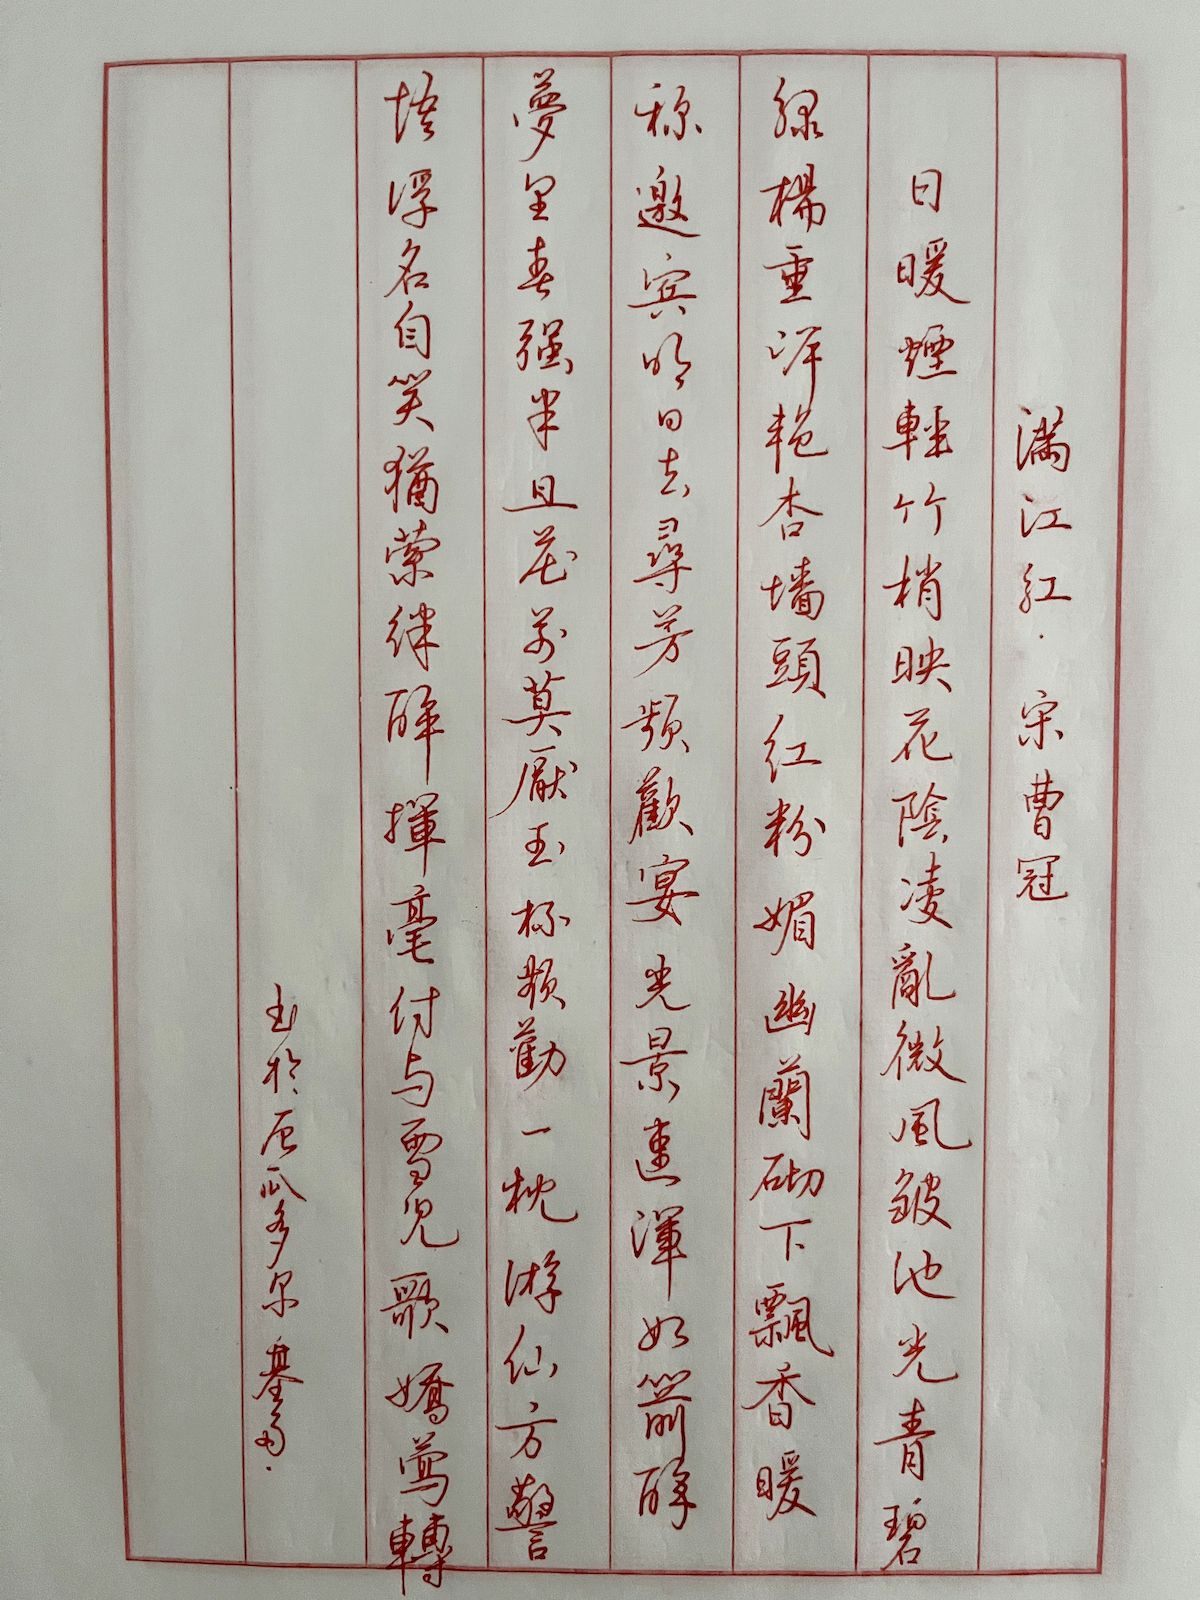 滿江紅·宋曹冠
日暖煙輕竹梢映花陰凌亂微風皺池光青碧
綠楊垂岸艳杏墻頭紅粉媚幽蘭砌下飄香暖
邀賓明日去尋芳頻歡宴光景速渾如箭醉
夢里春强半且花前莫厭玉杯頻勸一枕游仙方警
悟浮名自笑猶縈絆醉揮毫付与雪兒歌嬌鶯轉
书於厄瓜多尔基多.